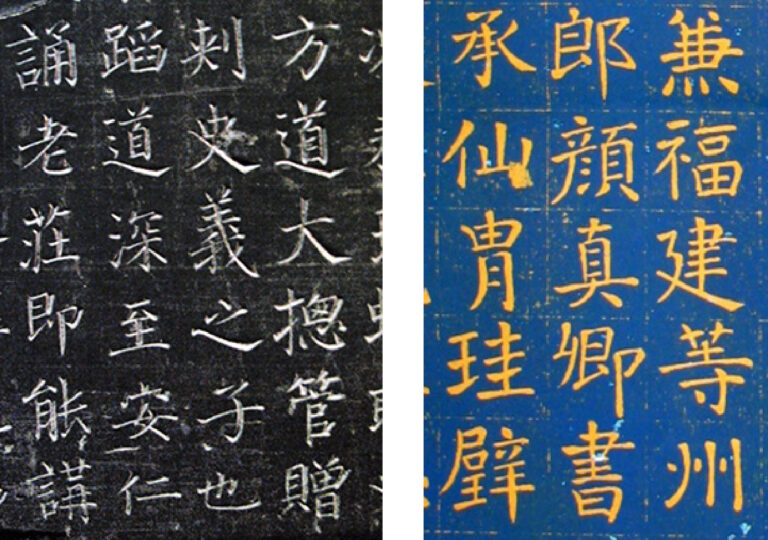 方道大摠管贈
刾史義之子也
蹈道深至安仁
誦老莊即能講
兼福建等州
郎顔真卿書
承仙冑珪璧